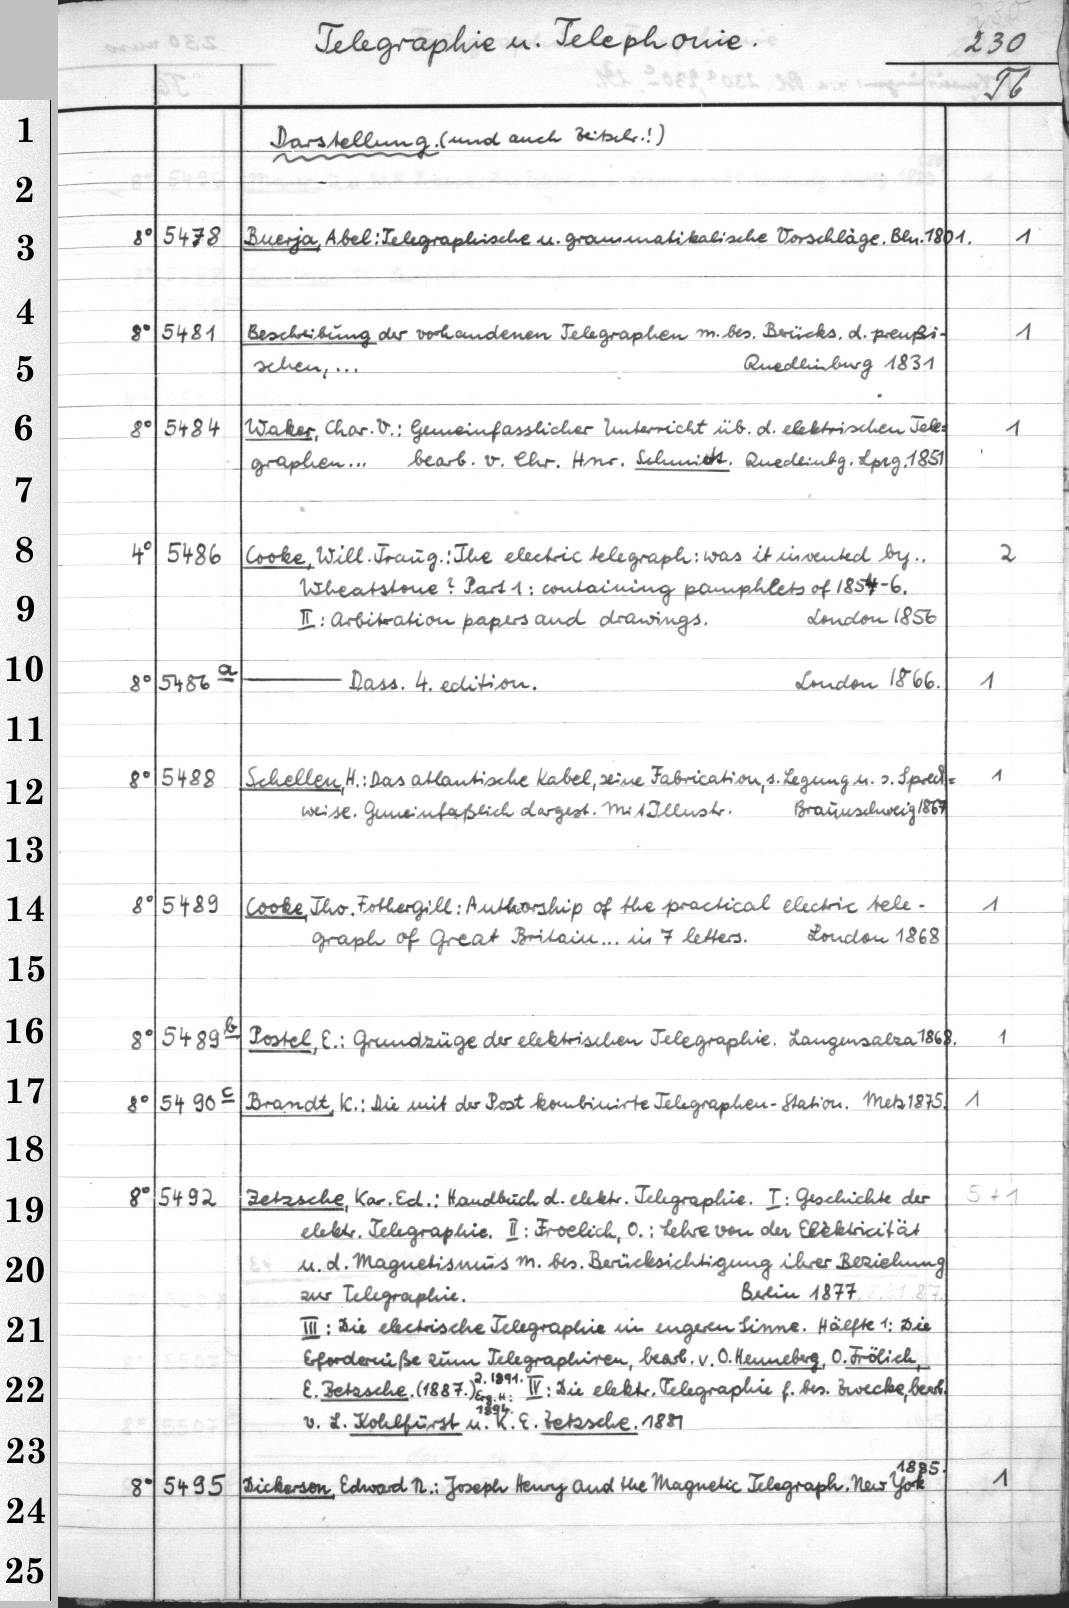 Telegraphie u. Telephonie.
230
Tb
1
Darstellung. (und auch Zeitschr.!)
2
3 8° 5478 Buerja, Abel: Telegraphische u. grammatikalische Vorschläge. Bln. 1801. 1
4
8° 5481 Beschreibung der vorhandenen Telegraphen m. bes. Berücks. d. preußi-
1
5 schen, ... Quedlinburg 1831
6 8° 5484 Waker, Char. V.: Gemeinfasslicher Unterricht üb. d. elektrischen Tele= 1
graphen... bearb. v. Chr. Hnr. Schmidt. Quedlinbg. Lpzg. 1851
7
8 4° 5486 Cooke, Will. Traug.: The electric telegraph: was it invented by.. 2
Wheatstone? Part 1: containing pamphlets of 1854-6.
9 II: Arbitration papers and drawings. London 1856
10 8° 5486 a ——— Dass. 4. edition. London 1866. 1
11
12 8° 5488 Schellen, H.: Das atlantische Kabel, seine Fabrication, s. Legung u. s. Sprech= 1
weise. Gemeinfaßlich dargest. Mit Illustr. Braunschweig 1867
13
14 8° 5489 Cooke, Tho. Fothergill: Authorship of the practical electric tele- 1
graph of Great Britain... in 7 letters. London 1868
15
16 8° 5489 b Postel, E.: Grundzüge der elektrischen Telegraphie. Langensalza 1868. 1
17 8° 5490 c Brandt, K.: Die mit der Post kombinirte Telegraphen-Station. Metz 1875. 1
18
19 8° 5492 Zetzsche, Kar. Ed.: Handbuch d. elektr. Telegraphie. I: Geschichte der 5+1
elektr. Telegraphie. II: Froelich, O.: Lehre von der Elektricität
20 u. d. Magnetismus m. bes. Berücksichtigung ihrer Beziehung
zur Telegraphie. Berlin 1877
21 III: Die electrische Telegraphie im engeren Sinne. Hälfte 1: Die
Erforderniße zum Telegraphiren, bearb. v. O. Henneberg, O. Frölich,
22 E. Zetzsche. (1887.) 2. 1891. Erg. H: 1894. IV: Die elektr. Telegraphie f. bes. Zwecke, bearb.
v. L. Kohlfürst u. K. E. Zetzsche. 1881
23
1885.
24 8° 5495 Dickerson, Edward N.: Joseph Henry and the Magnetic Telegraph. New York 1
25